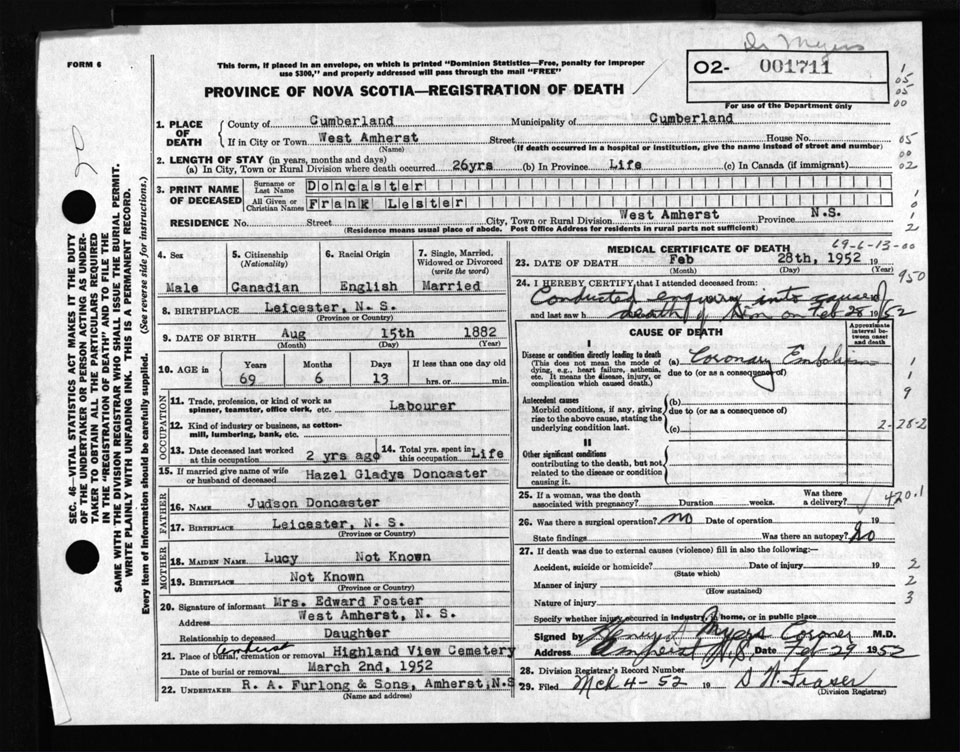 Dr Myers
FORM 6
This form, if placed in an envelope, on which is printed "Dominion Statistics—Free, penalty for improper
use $300," and properly addressed will pass through the mail "FREE"
02- 001711
For use of the Department only
PROVINCE OF NOVA SCOTIA—REGISTRATION OF DEATH
1. PLACE OF DEATH
County of Cumberland Municipality of Cumberland
If in City or Town West Amherst Street House No.
(Name) (If death occurred in a hospital or institution, give the name instead of street and number)
2. LENGTH OF STAY (in years, months and days)
(a) In City, Town or Rural Division where death occurred 26yrs (b) In Province Life (c) In Canada (if immigrant)
3. PRINT NAME OF DECEASED
Surname or Last Name Doncaster
All Given or Christian Names Frank Lester
RESIDENCE No. Street City, Town or Rural Division West Amherst Province N.S.
(Residence means usual place of abode. Post Office Address for residents in rural parts not sufficient)
4. Sex
Male
5. Citizenship
(Nationality)
Canadian
6. Racial Origin
English
7. Single, Married,
Widowed or Divorced
(write the word)
Married
8. BIRTHPLACE Leicester, N. S.
(Province or Country)
9. DATE OF BIRTH Aug 15th 1882
(Month) (Day) (Year)
10. AGE in
Years Months Days If less than one day old
69 6 13 hrs. or min.
OCCUPATION
11. Trade, profession, or kind of work as
spinner, teamster, office clerk, etc. Labourer
12. Kind of industry or business, as cotton-
mill, lumbering, bank, etc.
13. Date deceased last worked
at this occupation 2 yrs ago
14. Total yrs. spent in
this occupation Life
15. If married give name of wife
or husband of deceased Hazel Gladys Doncaster
FATHER
16. NAME Judson Doncaster
17. BIRTHPLACE Leicester, N. S.
(Province or Country)
MOTHER
18. MAIDEN NAME Lucy Not Known
19. BIRTHPLACE Not Known
(Province or Country)
20. Signature of informant Mrs. Edward Foster
Address West Amherst, N. S.
Relationship to deceased Daughter
Amherst
21. Place of burial, cremation or removal Highland View Cemetery
Date of burial or removal March 2nd, 1952
22. UNDERTAKER R. A. Furlong & Sons, Amherst, N.S
(Name and address)
69-6-13-00
MEDICAL CERTIFICATE OF DEATH
23. DATE OF DEATH Feb 28th, 1952 19
(Month) (Day) (Year)
950
24. I HEREBY CERTIFY, that I attended deceased from:
Conducted enquiry into cause of
and last saw h death of Him on Feb 28 1952
CAUSE OF DEATH
Approximate interval between onset and death
I
Disease or condition directly leading to death
(This does not mean the mode of
dying, e.g., heart failure, asthenia,
etc. It means the disease, injury, or
complication which caused death.)
(a) Coronary Embolism
due to (or as a consequence of)
Antecedent causes
Morbid conditions, if any, giving
rise to the above cause, stating the
underlying condition last.
(b)
due to (or as a consequence of)
(c)
2-28-2
II
Other significant conditions
contributing to the death, but not
related to the disease or condition
causing it.
25. If a woman, was the death
associated with pregnancy? Duration weeks. Was there a delivery?
420.1
26. Was there a surgical operation? no Date of operation 19
State findings Was there an autopsy? No
27. If death was due to external causes (violence) fill in also the following:—
Accident, suicide or homicide? Date of injury 19
(State which)
Manner of injury
(How sustained)
Nature of injury
Specify whether injury occurred in industry, home, or in public place
Signed by Myers Coroner M.D.
Address Amherst N.S. Date Feb 29 1952
28. Division Registrar's Record Number
29. Filed Mch 4-52 19 D W. Fraser
(Division Registrar)
20
SEC. 46—VITAL STATISTICS ACT MAKES IT THE DUTY
OF THE UNDERTAKER OR PERSON ACTING AS UNDER-
TAKER TO OBTAIN ALL THE PARTICULARS REQUIRED
IN THE "REGISTRATION OF DEATH" AND TO FILE THE
SAME WITH THE DIVISION REGISTRAR WHO SHALL ISSUE THE BURIAL PERMIT.
WRITE PLAINLY WITH UNFADING INK. THIS IS A PERMANENT RECORD.
Every item of information should be carefully supplied. (See reverse side for instructions.)
1
05
05
00
05
00
02
1
0
1
2
1
1
9
2
2
3